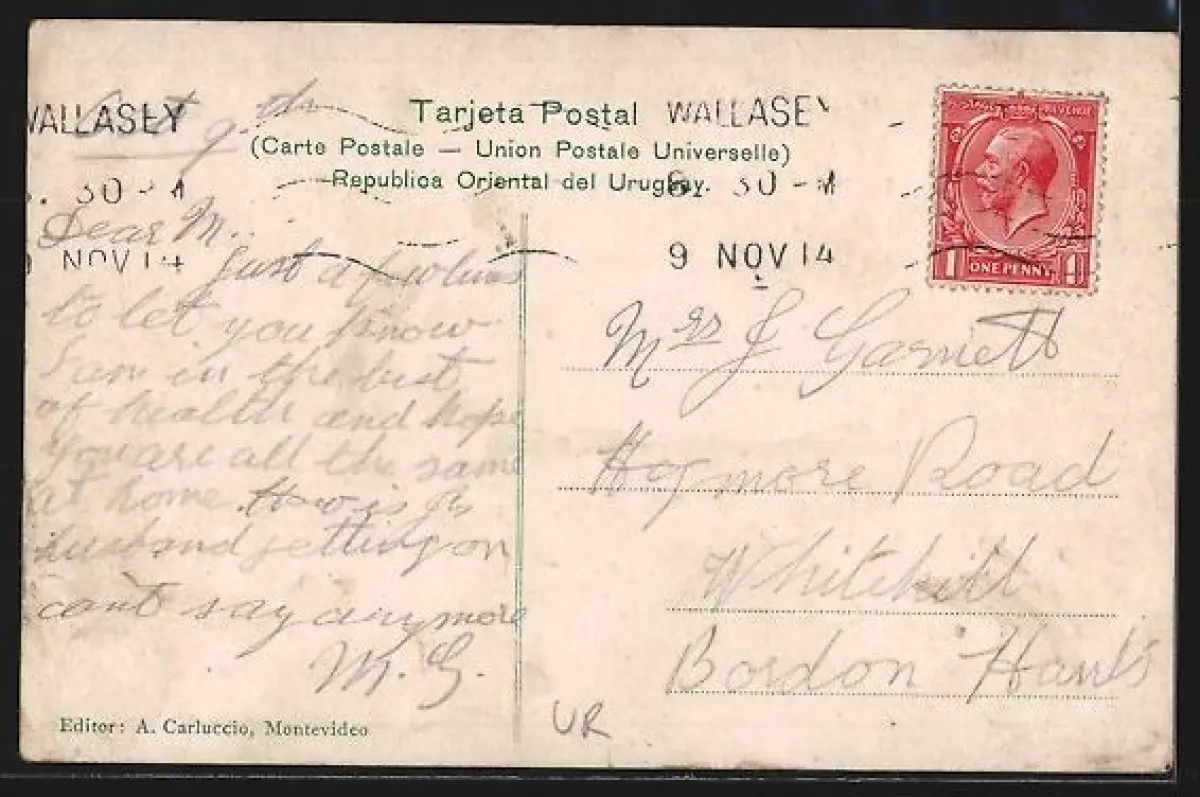 WALLASEY
9th
30 - M
NOV 14
Tarjeta Postal
(Carte Postale — Union Postale Universelle)
Republica Oriental del Uruguay.
WALLASEY
6. 30 - M
9 NOV 14
POSTAGE REVENUE
1 ONE PENNY 1
Dear M..
Just a few lines
to let you know
I am in the best
of health and hope
you are all the same
at home. How is
husband getting on
cant say anymore
M. G.
Editor: A. Carluccio, Montevideo
Mrs J Garnett
Hogmore Road
Whitehill
Bordon Hants
UR